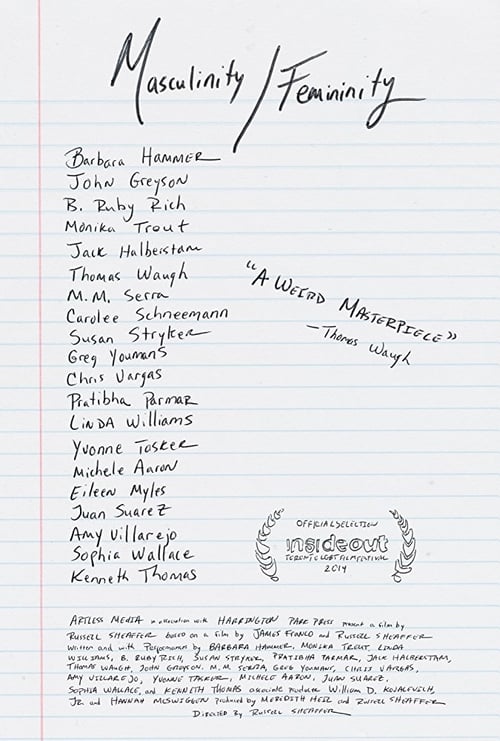 Masculinity / Femininity
Barbara HAMMER
John Greyson
B. Ruby Rich
Monika Trout
Jack Halberstam
Thomas Waugh
M.M. Serra
Carolee Schneemann
Susan Stryker
Greg Youmans
Chris Vargas
Pratibha Parmar
LINDA Williams
Yvonne Tasker
Michele Aaron
Eileen Myles
Juan Suarez
Amy Villarejo
Sophia Wallace
Kenneth Thomas
"A WEIRD MASTERPIECE"
—Thomas Waugh
OFFICIAL SELECTION
insideout
TORONTO LGBT FILM FESTIVAL
2014
ARTLESS MEDIA in association with HARRINGTON PARK PRESS present a film by
RUSSELL SHEAFFER based on a film by JAMES FRANCO and RUSSELL SHEAFFER
Written and with Performances by BARBARA HAMMER, MONIKA TREUT, LINDA
WILLIAMS, B. RUBY RICH, SUSAN STRYKER, PRATIBHA PARMAR, JACK HALBERSTAM,
THOMAS WAUGH, JOHN GREYSON, M.M. SERRA, GREG YOUMANS, CHRIS VARGAS,
AMY VILLAREJO, YVONNE TASKER, MICHELE AARON, JUAN SUAREZ,
SOPHIA WALLACE, and KENNETH THOMAS associate producer WILLIAM D. KOVALEVICH,
JR. and HANNAH MCSWIGGEN produced by MEREDITH HEIL and RUSSELL SHEAFFER
DIRECTED BY RUSSELL SHEAFFER